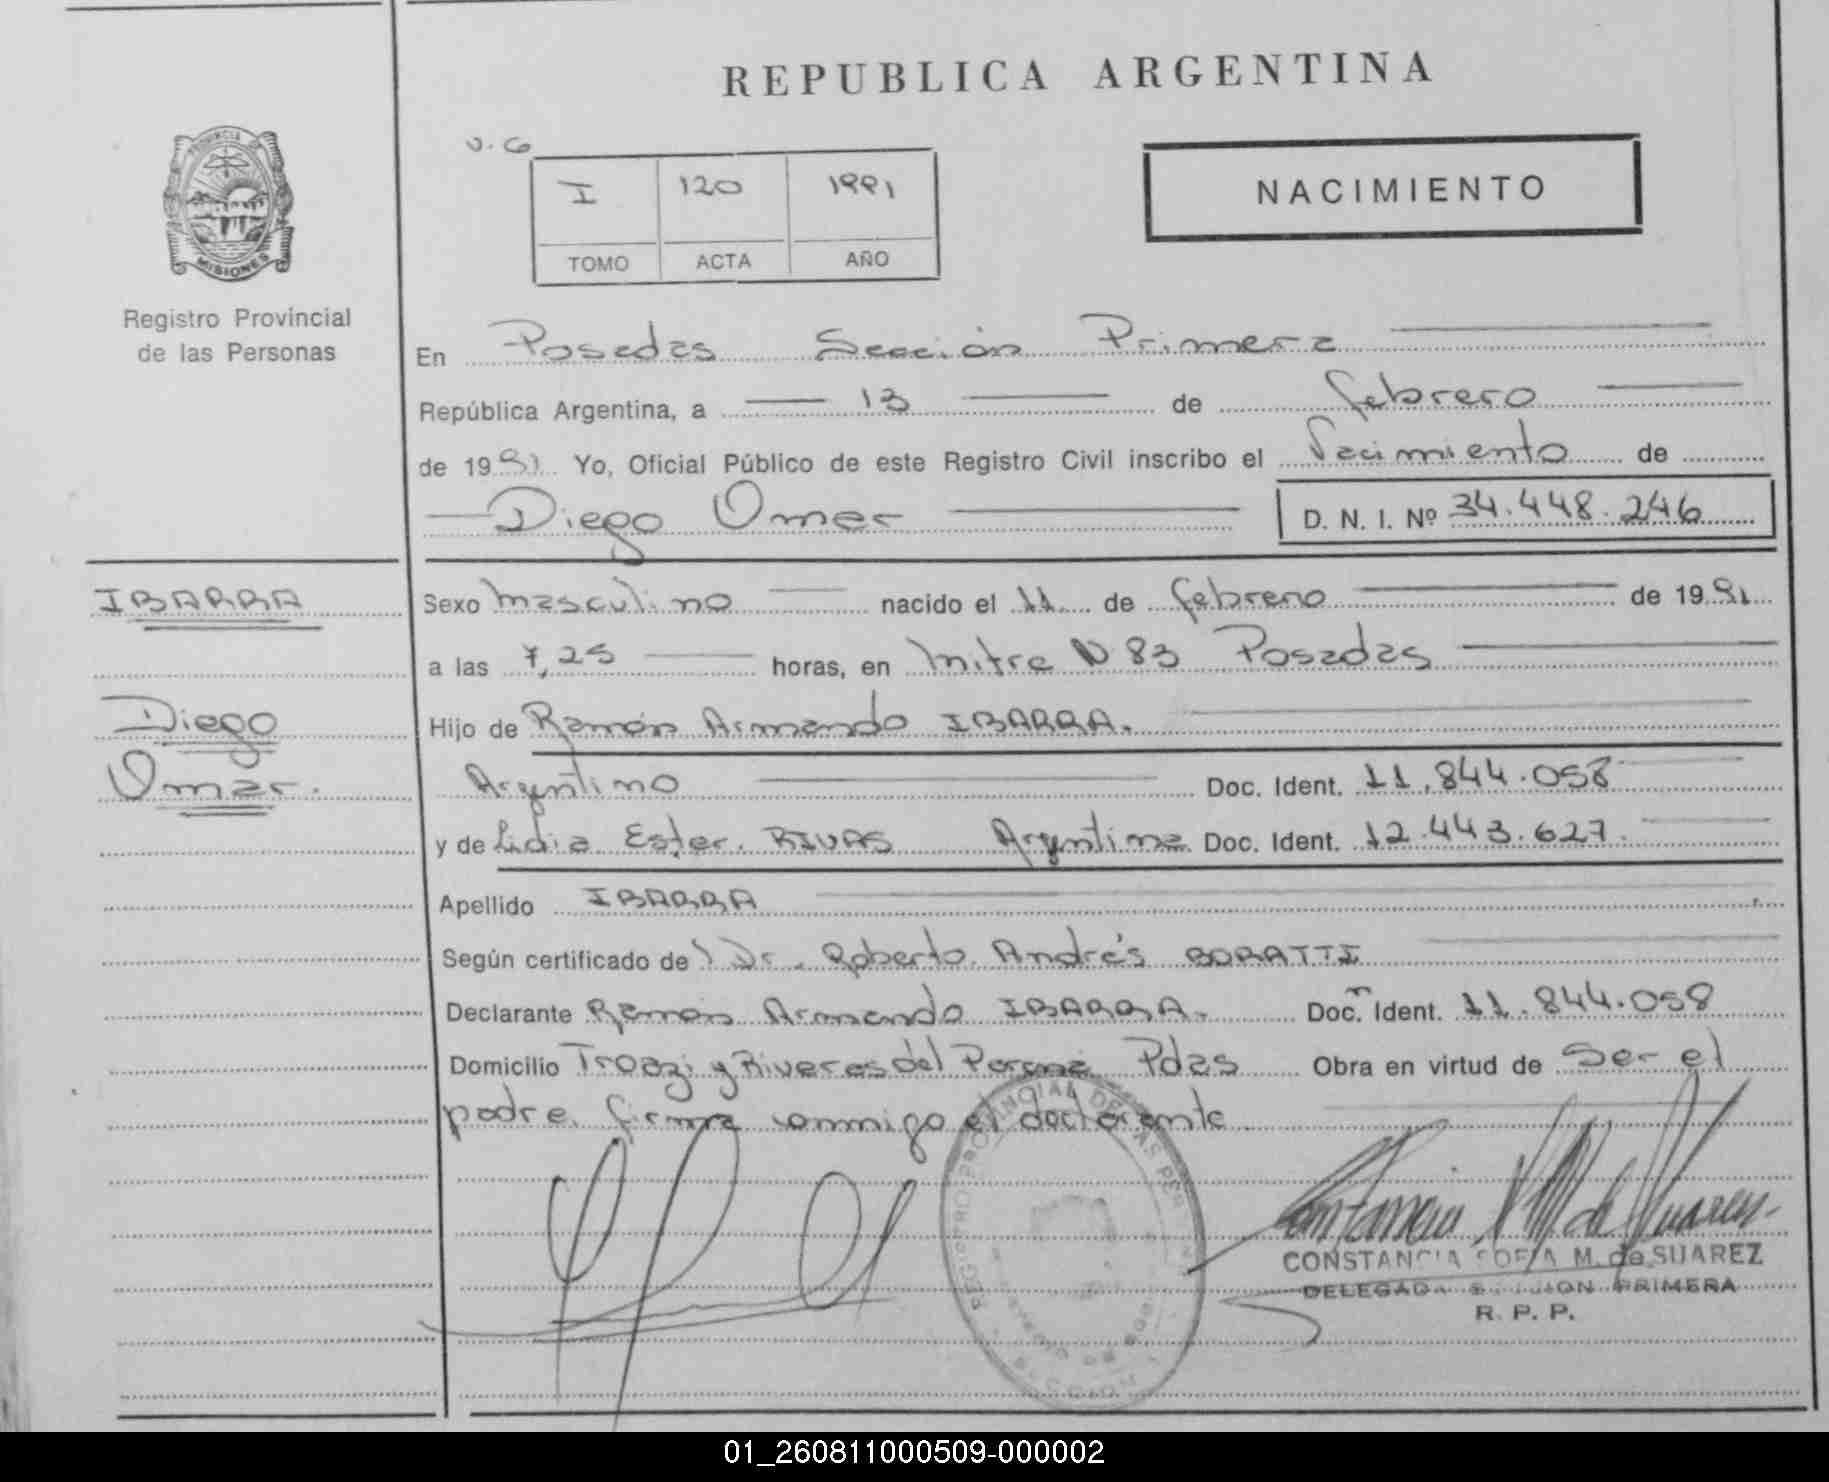 REPUBLICA ARGENTINA
PROVINCIA DE
MISIONES
Registro Provincial
de las Personas
V.G
I 120 1991
TOMO ACTA AÑO
NACIMIENTO
En Posadas Sección Primera
República Argentina, a 13 de febrero
de 1991 Yo, Oficial Público de este Registro Civil inscribo el Nacimiento de
Diego Omar D. N. I. Nº 34.448.246
IBARRA
Diego
Omar.
Sexo masculino nacido el 11 de febrero de 1991
a las 7,25 horas, en Mitre N 83 Posadas
Hijo de Ramón Armando IBARRA.
Argentino Doc. Ident. 11.844.058
y de Lidia Ester RIVAS Argentina Doc. Ident. 12.443.627.
Apellido IBARRA
Según certificado de Dr. Roberto Andrés BORATTI
Declarante Ramón Armando IBARRA. Doc. Ident. 11.844.058
Domicilio y Riveras del Paraná Pdas Obra en virtud de Ser el
padre. firma conmigo el declarante.
REGISTRO PROVINCIAL DE LAS PER
CONSTANCIA SOFIA M. de SUAREZ
DELEGADA SECCION PRIMERA
R. P. P.
01_260811000509-000002